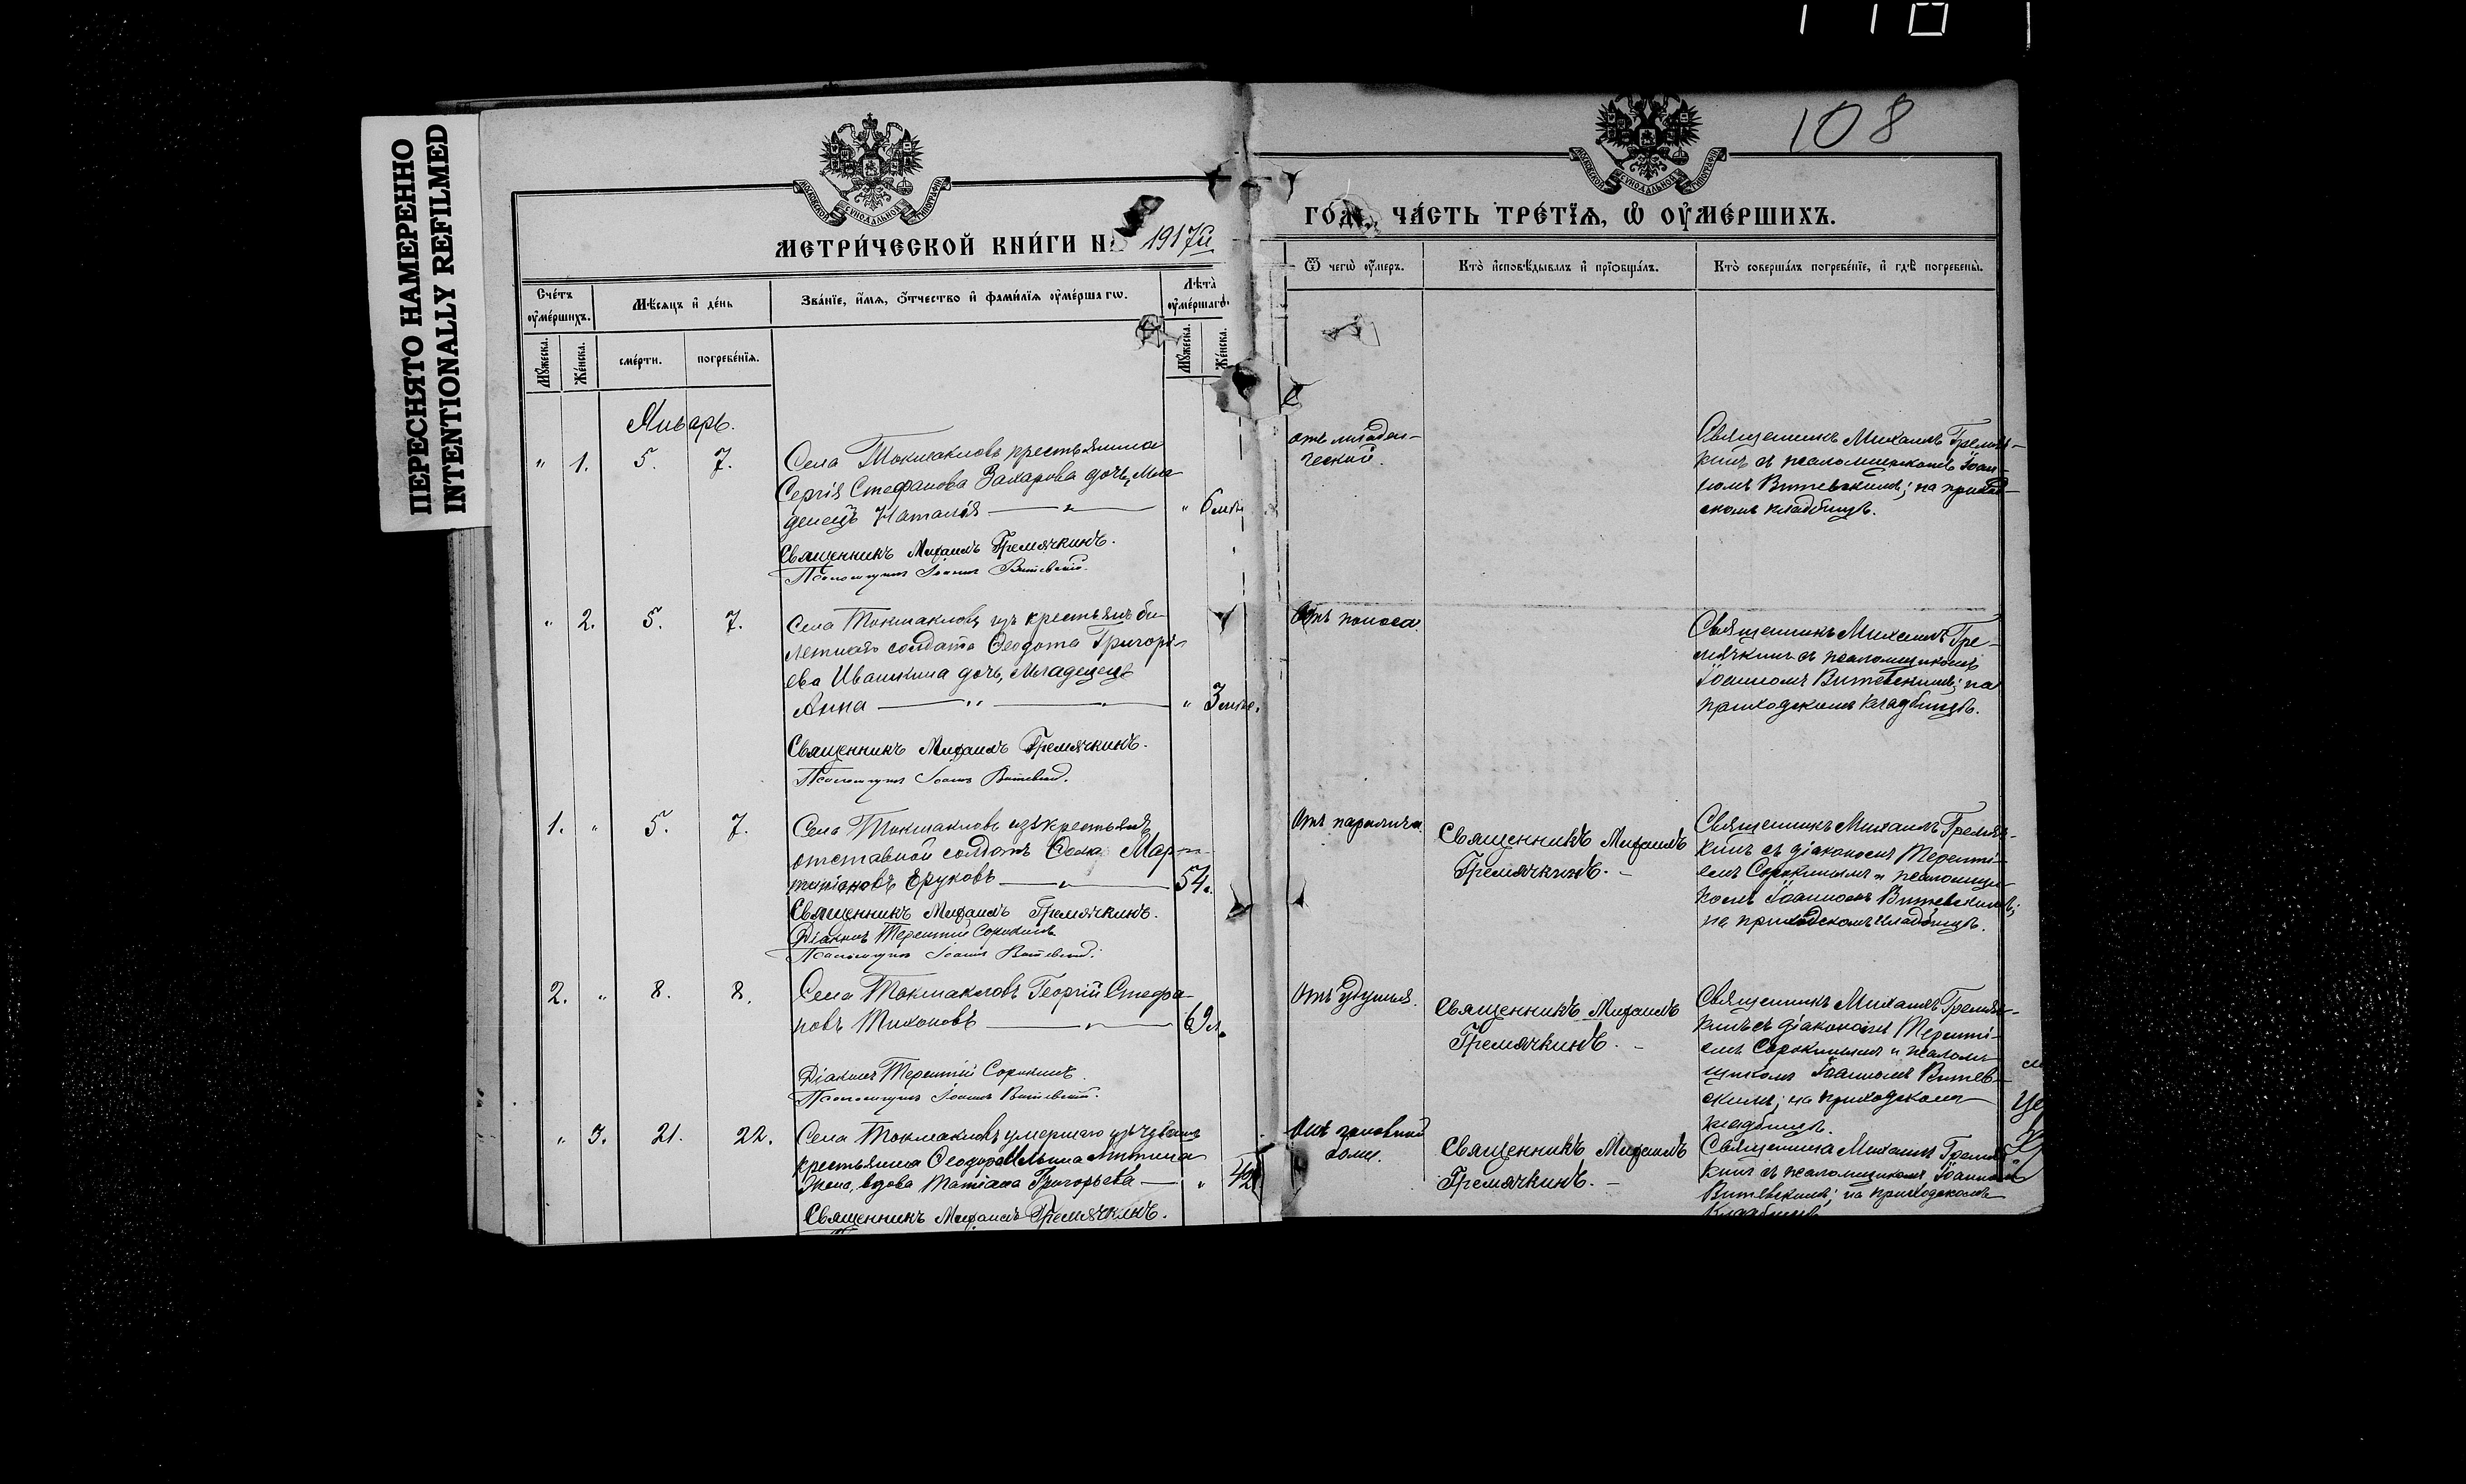 108
ПЕРЕСНЯТО НАМЕРЕННО
INTENTIONALLY REFILMED
МОСКОВСКОЙ СѴНОДАЛЬНОЙ ТИПОГРАФІИ
МОСКОВСКОЙ СѴНОДАЛЬНОЙ ТИПОГРАФІИ
МЕТРИ́ЧЕСКОЙ КНИ́ГИ Н 1917й
ЧА́СТЬ ТРЕ́ТЇѦ, Ѡ҆ ОУ҆МЕ́РШИХЪ.
Сче́тъ оу҆ме́ршихъ.
Мꙋ́жеска.
Же́нска.
Мѣ́сяцъ и҆ де́нь
сме́рти.
погребе́нїѧ.
Зва́нїе, и҆́мѧ, ѻ҆́тчество и҆ фами́лїѧ оу҆ме́ршагѡ.
Лѣ́та оу҆ме́ршагѡ
Мꙋ́жеска.
Же́нска.
Ѿ чегѡ̀ оу҆́меръ.
Кто̀ и҆сповѣ́дывалъ и҆ прїѡбща́лъ.
Кто̀ соверша́лъ погребе́нїе, и҆ гдѣ̀ погребены̀.
Январь.
" 1. 5. 7.
Села Токмакловъ крестьянина
Сергія Стефанова Захарова дочь, мла-
денецъ Наталія — " —
" 6
Священникъ Михаилъ Гремячкинъ.
Псаломщикъ Іоаннъ Витевскій.
отъ младен-
ческой.
Священникъ Михаилъ Гремяч-
кинъ съ псаломщикомъ Іоан-
номъ Витевскимъ; на приход-
скомъ кладбищѣ.
" 2. 5. 7.
Села Токмаклова изъ крестьянъ би-
летнаго солдата Ѳеодота Григорі-
ева Ивашкина дочь, младенецъ
Анна — " —
" 3
Священникъ Михаилъ Гремячкинъ.
Псаломщикъ Іоаннъ Витевскій.
Отъ поноса.
Священникъ Михаилъ Гре-
мячкинъ съ псаломщикомъ
Іоанномъ Витевскимъ; на
приходскомъ кладбищѣ.
1. " 5. 7.
Села Токмаклова изъ крестьянъ
отставной солдатъ Мар-
тиніановъ Еруковъ — " —
54
Священникъ Михаилъ Гремячкинъ.
Діаконъ Терентій Сорокинъ
Псаломщикъ Іоаннъ Витевскій.
Отъ паралича.
Священникъ Михаилъ
Гремячкинъ. –
Священникъ Михаилъ Гремяч-
кинъ съ діакономъ Терентi-
емъ Сорокинымъ и псаломщи-
комъ Іоанномъ Витевскимъ;
на приходскомъ кладбищѣ.
2. " 8. 8.
Села Токмаклова Георгій Стефа-
новъ Тихоновъ — " —
69 л.
Діаконъ Терентій Сорокинъ
Псаломщикъ Іоаннъ Витевскій.
Отъ удушья.
Священникъ Михаилъ
Гремячкинъ. –
Священникъ Михаилъ Гремяч-
кинъ съ діакономъ Терентi-
емъ Сорокинымъ и псалом-
щикомъ Іоанномъ Витев-
скимъ; на приходскомъ
кладбищѣ.
" 3. 21. 22.
Села Токмаклова умершаго
крестьянина Ѳеодора Ильина Митина
жена, вдова Татіана Григорьева —
" 42
Священникъ Михаилъ Гремячкинъ.
Отъ головной
боли.
Священникъ Михаилъ
Гремячкинъ. –
Священникъ Михаилъ Гремяч-
кинъ съ псаломщикомъ Іоанномъ
Витевскимъ; на приходскомъ
кладбищѣ.